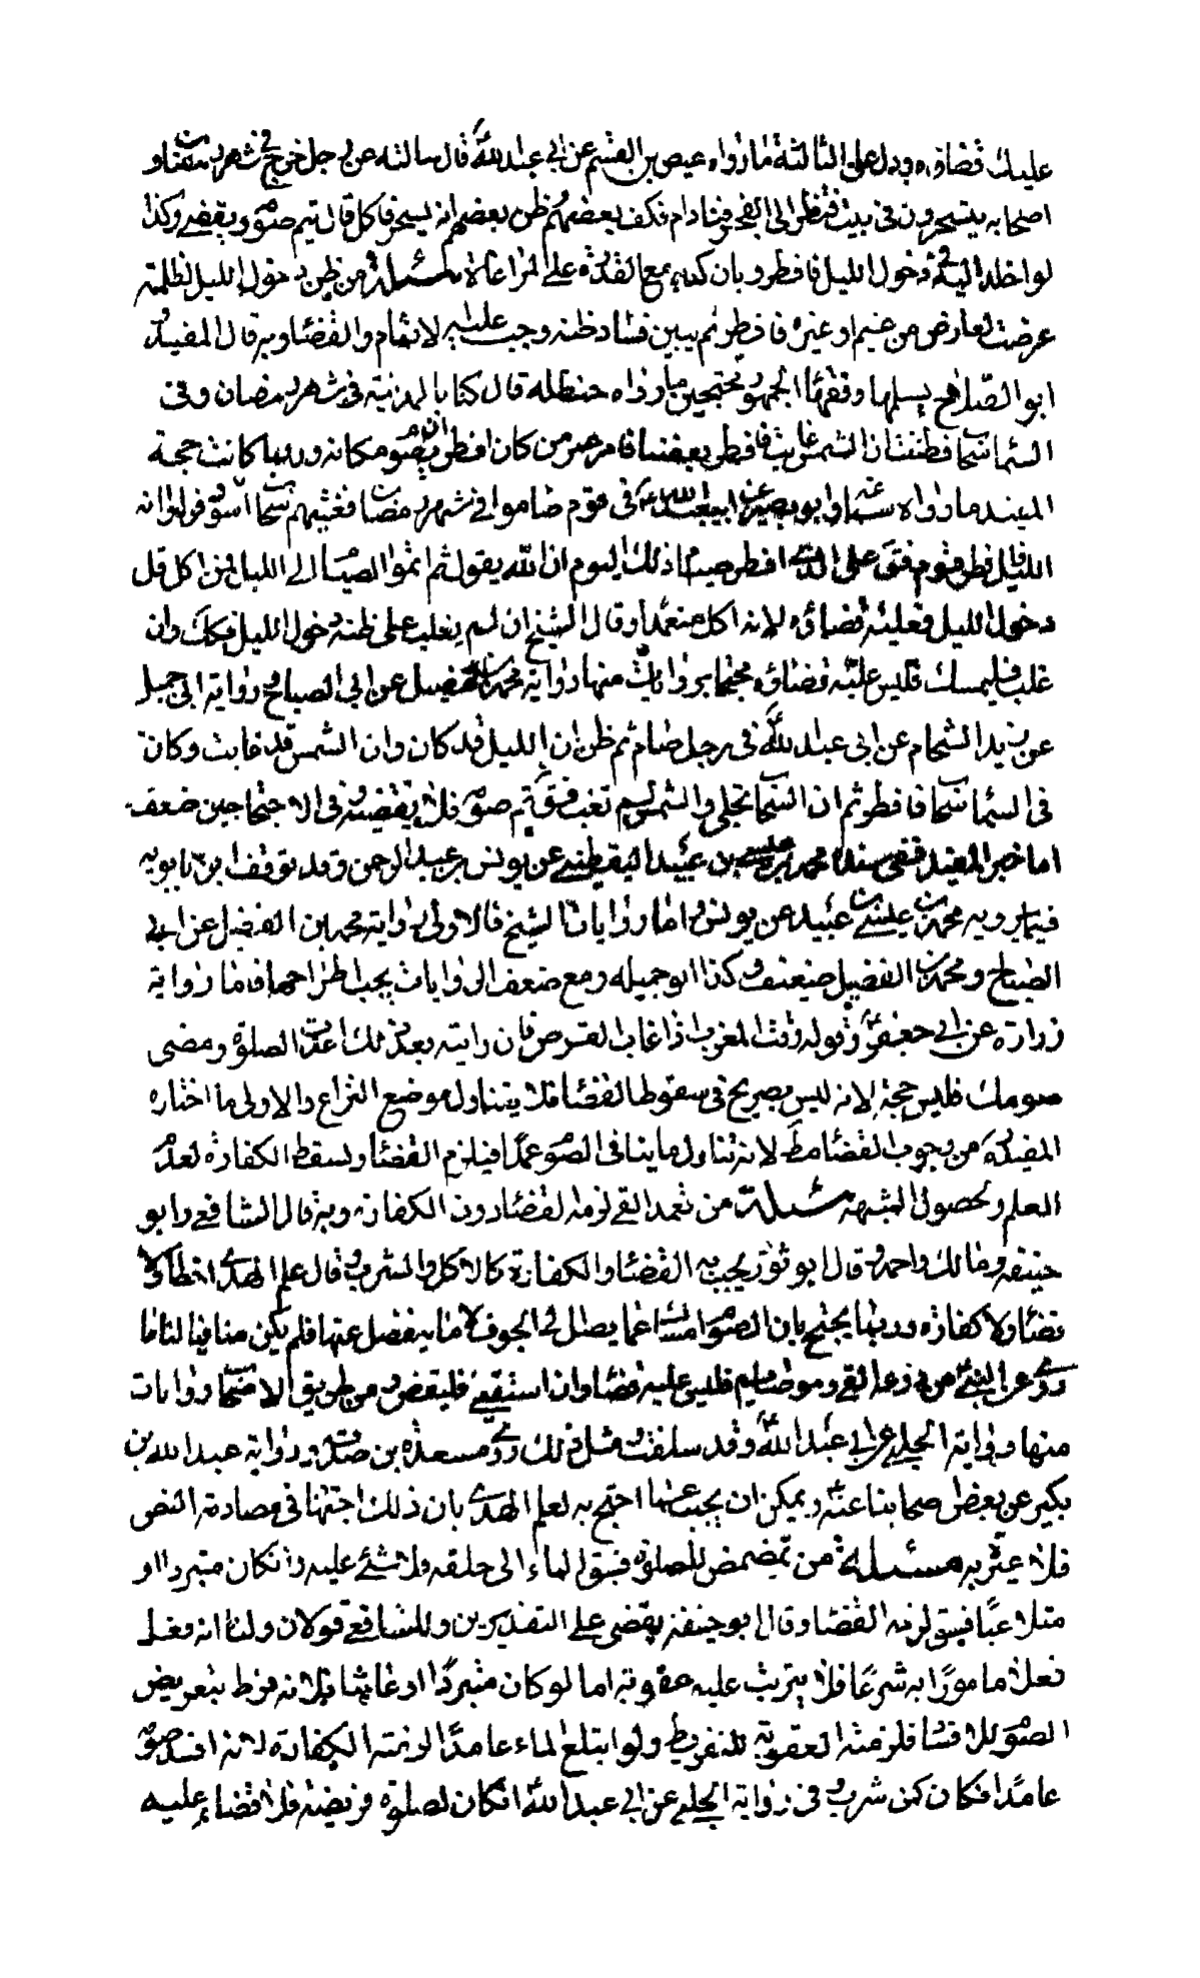 عليك قضاؤه ويدل على الثالثة ما رواه عيص بن القسم عن ابي عبد الله ع قال سالته عن رجل خرج في شهر رمضان و
اصحابه يتسحرون في بيت فنظر الى الفجر فنادام فكف بعضهم وظن بعضهم انه يسخر فاكل قال يتم صومه ويقضي وكذا
لو اخلد اليه في دخول الليل فافطر وبان كذبه مع القدرة على المراعاة مسئلة من ظن دخول الليل لظلمة
عرضت لعارض من غيم او غيره فافطر ثم يبين فساد ظنه وجب عليه الاتمام والقضاء وبه قال المفيد و
ابو الصلاح يسلها وفقهاء الجمهور محتجين بما رواه حنظلة قال كنا بالمدينة في شهر رمضان وفي
السماء سحاب فظننا ان الشمس غابت فافطر بعضنا فامر عمر من كان افطر ان يصوم مكانه وربما كانت حجة
المفيد ما رواه سماعة وابو بصير عن ابي عبد الله ع في قوم صاموا في شهر رمضان فغشيهم سحاب اسود فراوا انه
الليل فافطر قوم فقال على الذي افطر صيام ذلك اليوم ان الله يقول ثم اتموا الصيام الى الليل فمن اكل قبل
دخول الليل فعليه قضاؤه لانه اكل متعمدا وقال الشيخ ان لم يغلب على ظنه دخول الليل فكك وان
غلب فليمسك فليس عليه قضاؤه محتجا بروايات منها رواية محمد بن فضيل عن ابي الصباح ورواية ابي جميلة
عن زيد الشحام عن ابي عبد الله ع في رجل صام ثم ظن ان الليل قد كان وان الشمس قد غابت وكان
في السماء سحاب فافطر ثم ان السحاب تجلى والشمس لم تغب فقال تم صومه فلا يقضيه وفي الاحتجاجين ضعف
اما خبر المفيد ففي سنده محمد بن عيسى بن عبيد اليقطيني عن يونس بن عبد الرحمن وقد توقف ابن بابويه
فيما يرويه محمد بن عيسى بن عبيد عن يونس واما روايات الشيخ فالاولى رواية محمد بن الفضيل عن ابي
الصباح ومحمد بن الفضيل ضعيف وكذا ابو جميلة ومع ضعف الروايات يجب اطراحها فاما رواية
زرارة عن ابي جعفر ع وقوله وقت المغرب اذا غاب القرص فان رايته بعد ذلك اعدت الصلوة ومضى
صومك فليس حجة لانه ليس بصريح في سقوط القضاء فلا يتناول موضع النزاع والاولى ما اختاره
المفيد ره من وجوب القضاء مط لانه تناول ما ينافي الصوم عمدا فيلزم القضاء ويسقط الكفارة لعدم
العلم ولحصول الشبهة مسئلة من تعمد القي لزمه القضاء دون الكفارة وبه قال الشافعي وابو
حنيفة ومالك واحمد وقال ابو ثور يجب به القضاء والكفارة كالاكل والشرب وقال علم الهدى اخطا ولا
قضاء ولا كفارة وربما يحتج بان الصوم امساك عما يصل الى الجوف لا ما ينفصل عنها فلم يكن منافيا لنا ما
روي عن النبي ص من ذرعه القي وهو صايم فليس عليه قضاء وان استقي فليقض ومن طريق الاصحاب روايات
منها رواية الحلبي عن ابي عبد الله ع وقد سلفت ومثل ذلك روى مسعدة بن صدقة ورواية عبد الله بن
بكير عن بعض اصحابنا عنه ع ويمكن ان يجيب عما احتج به لعلم الهدى بان ذلك اجتهاد في مصادمة النص
فلا عبرة به مسئلة من تمضمض للصلوة فسبق الماء الى حلقه فلا شيء عليه وان كان متبردا او
متلاعبا فسبق لزمه القضاء وقال ابو حنيفة يقضي على التقديرين وللشافعي قولان ولنا انه فعل
فعلا مامورا به شرعا فلا يترتب عليه عقوبة اما لو كان متبردا او عابثا فلانه فرط بتعريض
الصوم للافساد فلزمته العقوبة للتفريط ولو ابتلع الماء عامدا لزمته الكفارة لانه افسد صومه
عامدا فكان كمن شرب وفي رواية الحلبي عن ابي عبد الله ع ان كان لصلوة فريضة فلا قضاء عليه